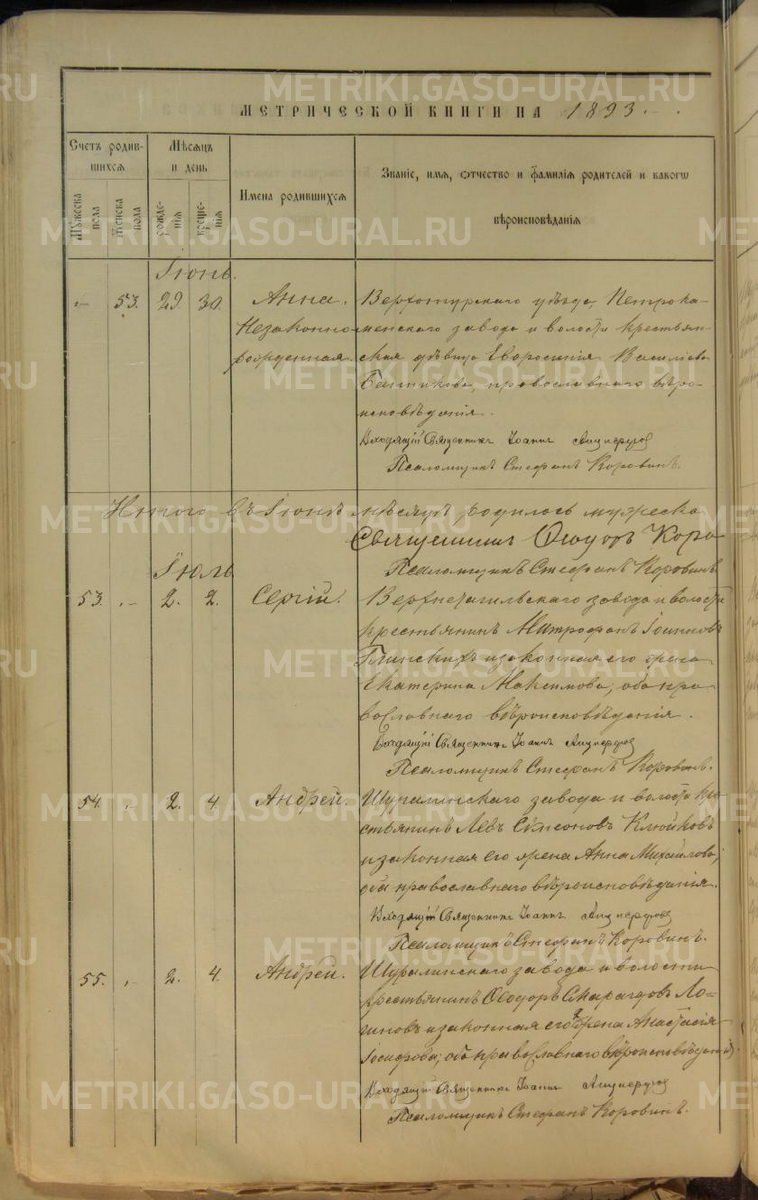 МЕТРИЧЕСКОЙ КНИГИ НА 1893
Счетъ родив-
шихся
Мѣсяцъ
и день
Имена родившихся
Званіе, имя, отчество и фамилія родителей и какого
вѣроисповѣданія
Мужеска пола
Женска пола
рожде-
нія
креще-
нія
Іюнь.
53. 29 30. Анна. Верхотурскаго уѣзда, Петрока-
Незаконно- менскаго завода и волости крестьян-
рожденная. ская дѣвица Евфросинія Васильева
православнаго вѣро-
исповѣданія.
Входящій Священникъ Іоаннъ
Псаломщикъ Стефанъ Коровинъ.
Итого въ Іюнѣ мѣсяцѣ родилось мужеска
Священникъ Ѳеодоръ Коро
Псаломщикъ Стефанъ Коровинъ
Іюль
53. 2. 2. Сергій. Верхнетагильскаго завода и волости
крестьянинъ Митрофанъ Іоанновъ
и законная его жена
Екатерина Максимова, оба пра-
вославнаго вѣроисповѣданія.
Входящій Священникъ Іоаннъ
Псаломщикъ Стефанъ Коровинъ.
54. 2. 4. Андрей. Шуралинскаго завода и волости кре-
стьянинъ Левъ Сѵмеоновъ Клюйковъ
и законная его жена Анна Михайлова,
оба православнаго вѣроисповѣданія.
Входящій Священникъ Іоаннъ
Псаломщикъ Стефанъ Коровинъ.
55. 2. 4. Андрей. Шуралинскаго завода и волости
крестьянинъ Ѳеодоръ Смарагдовъ Ло-
гиновъ и законная его жена Анастасія
Іосифова, оба православнаго вѣроисповѣданія.
Входящій Священникъ Іоаннъ
Псаломщикъ Стефанъ Коровинъ.
METRIKI.GASO-URAL.RU